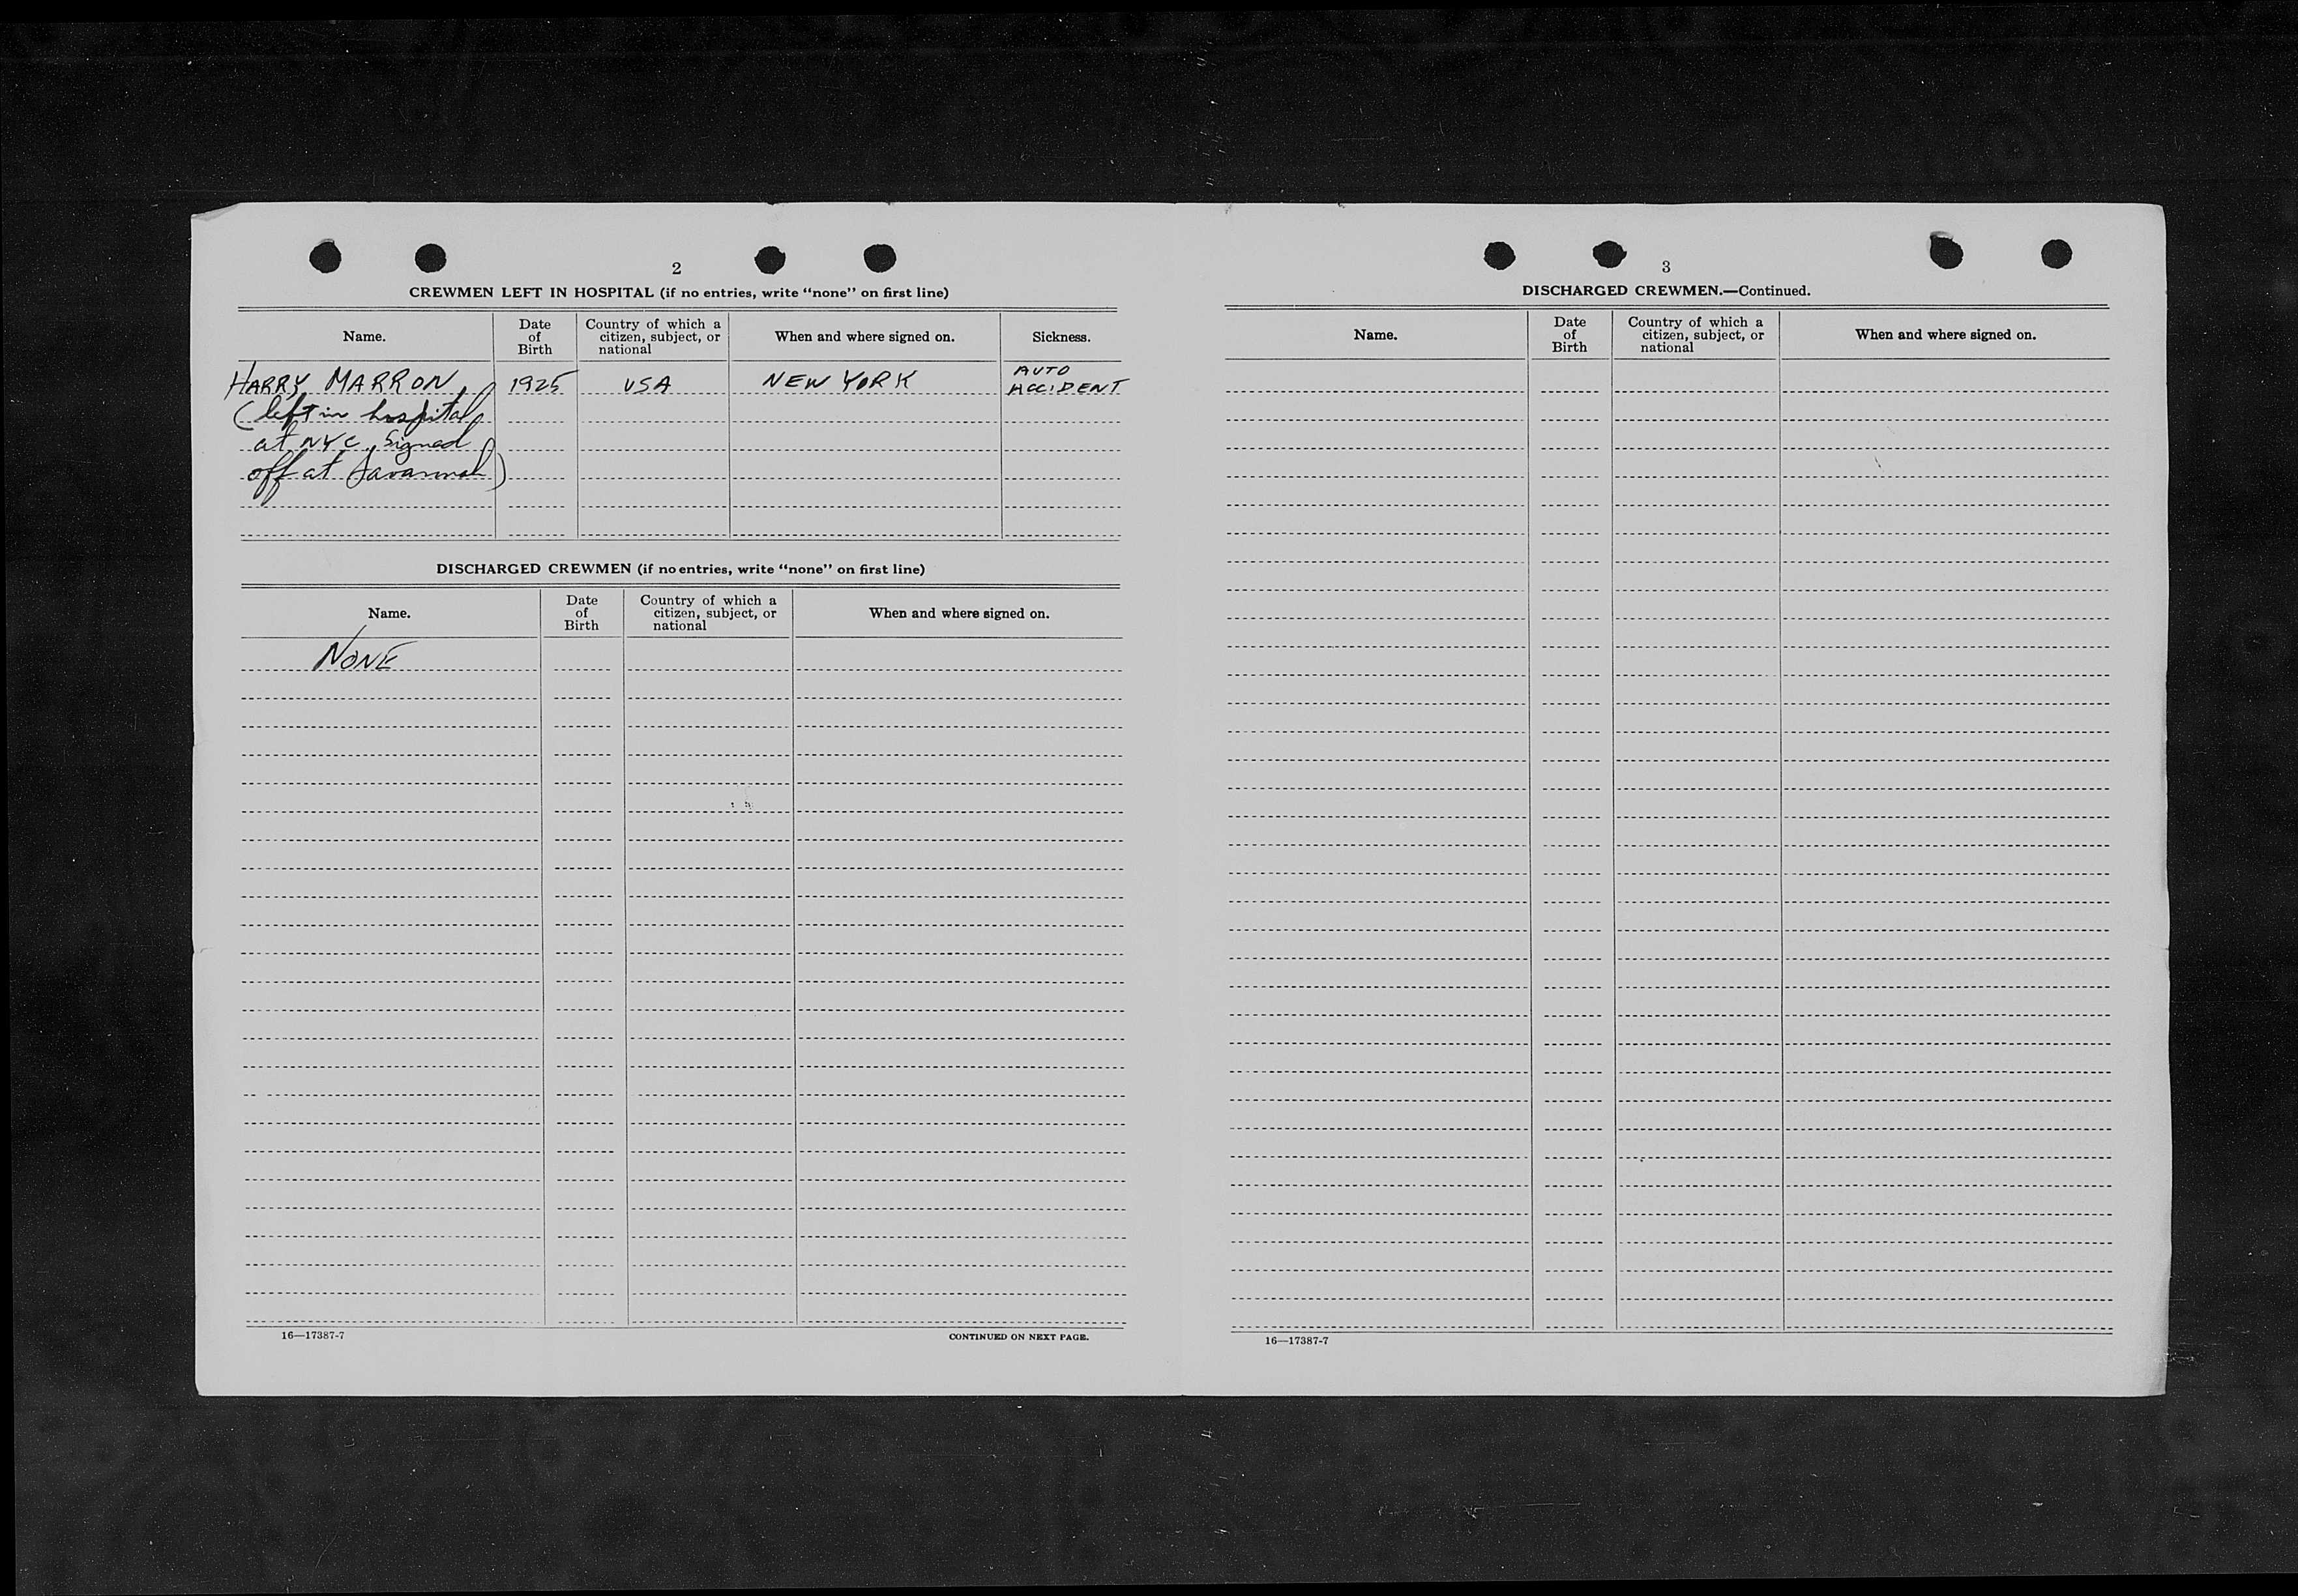 2
CREWMEN LEFT IN HOSPITAL (if no entries, write "none" on first line)
Name. Date of Birth Country of which a citizen, subject, or national When and where signed on. Sickness.
HARRY MARRON 1925 USA NEW YORK AUTO ACCIDENT
(left in hospital
at NYC. Signed
off at Savannah)
DISCHARGED CREWMEN (if no entries, write "none" on first line)
Name. Date of Birth Country of which a citizen, subject, or national When and where signed on.
NONE
16—17387-7 CONTINUED ON NEXT PAGE.
3
DISCHARGED CREWMEN.—Continued.
Name. Date of Birth Country of which a citizen, subject, or national When and where signed on.
16—17387-7